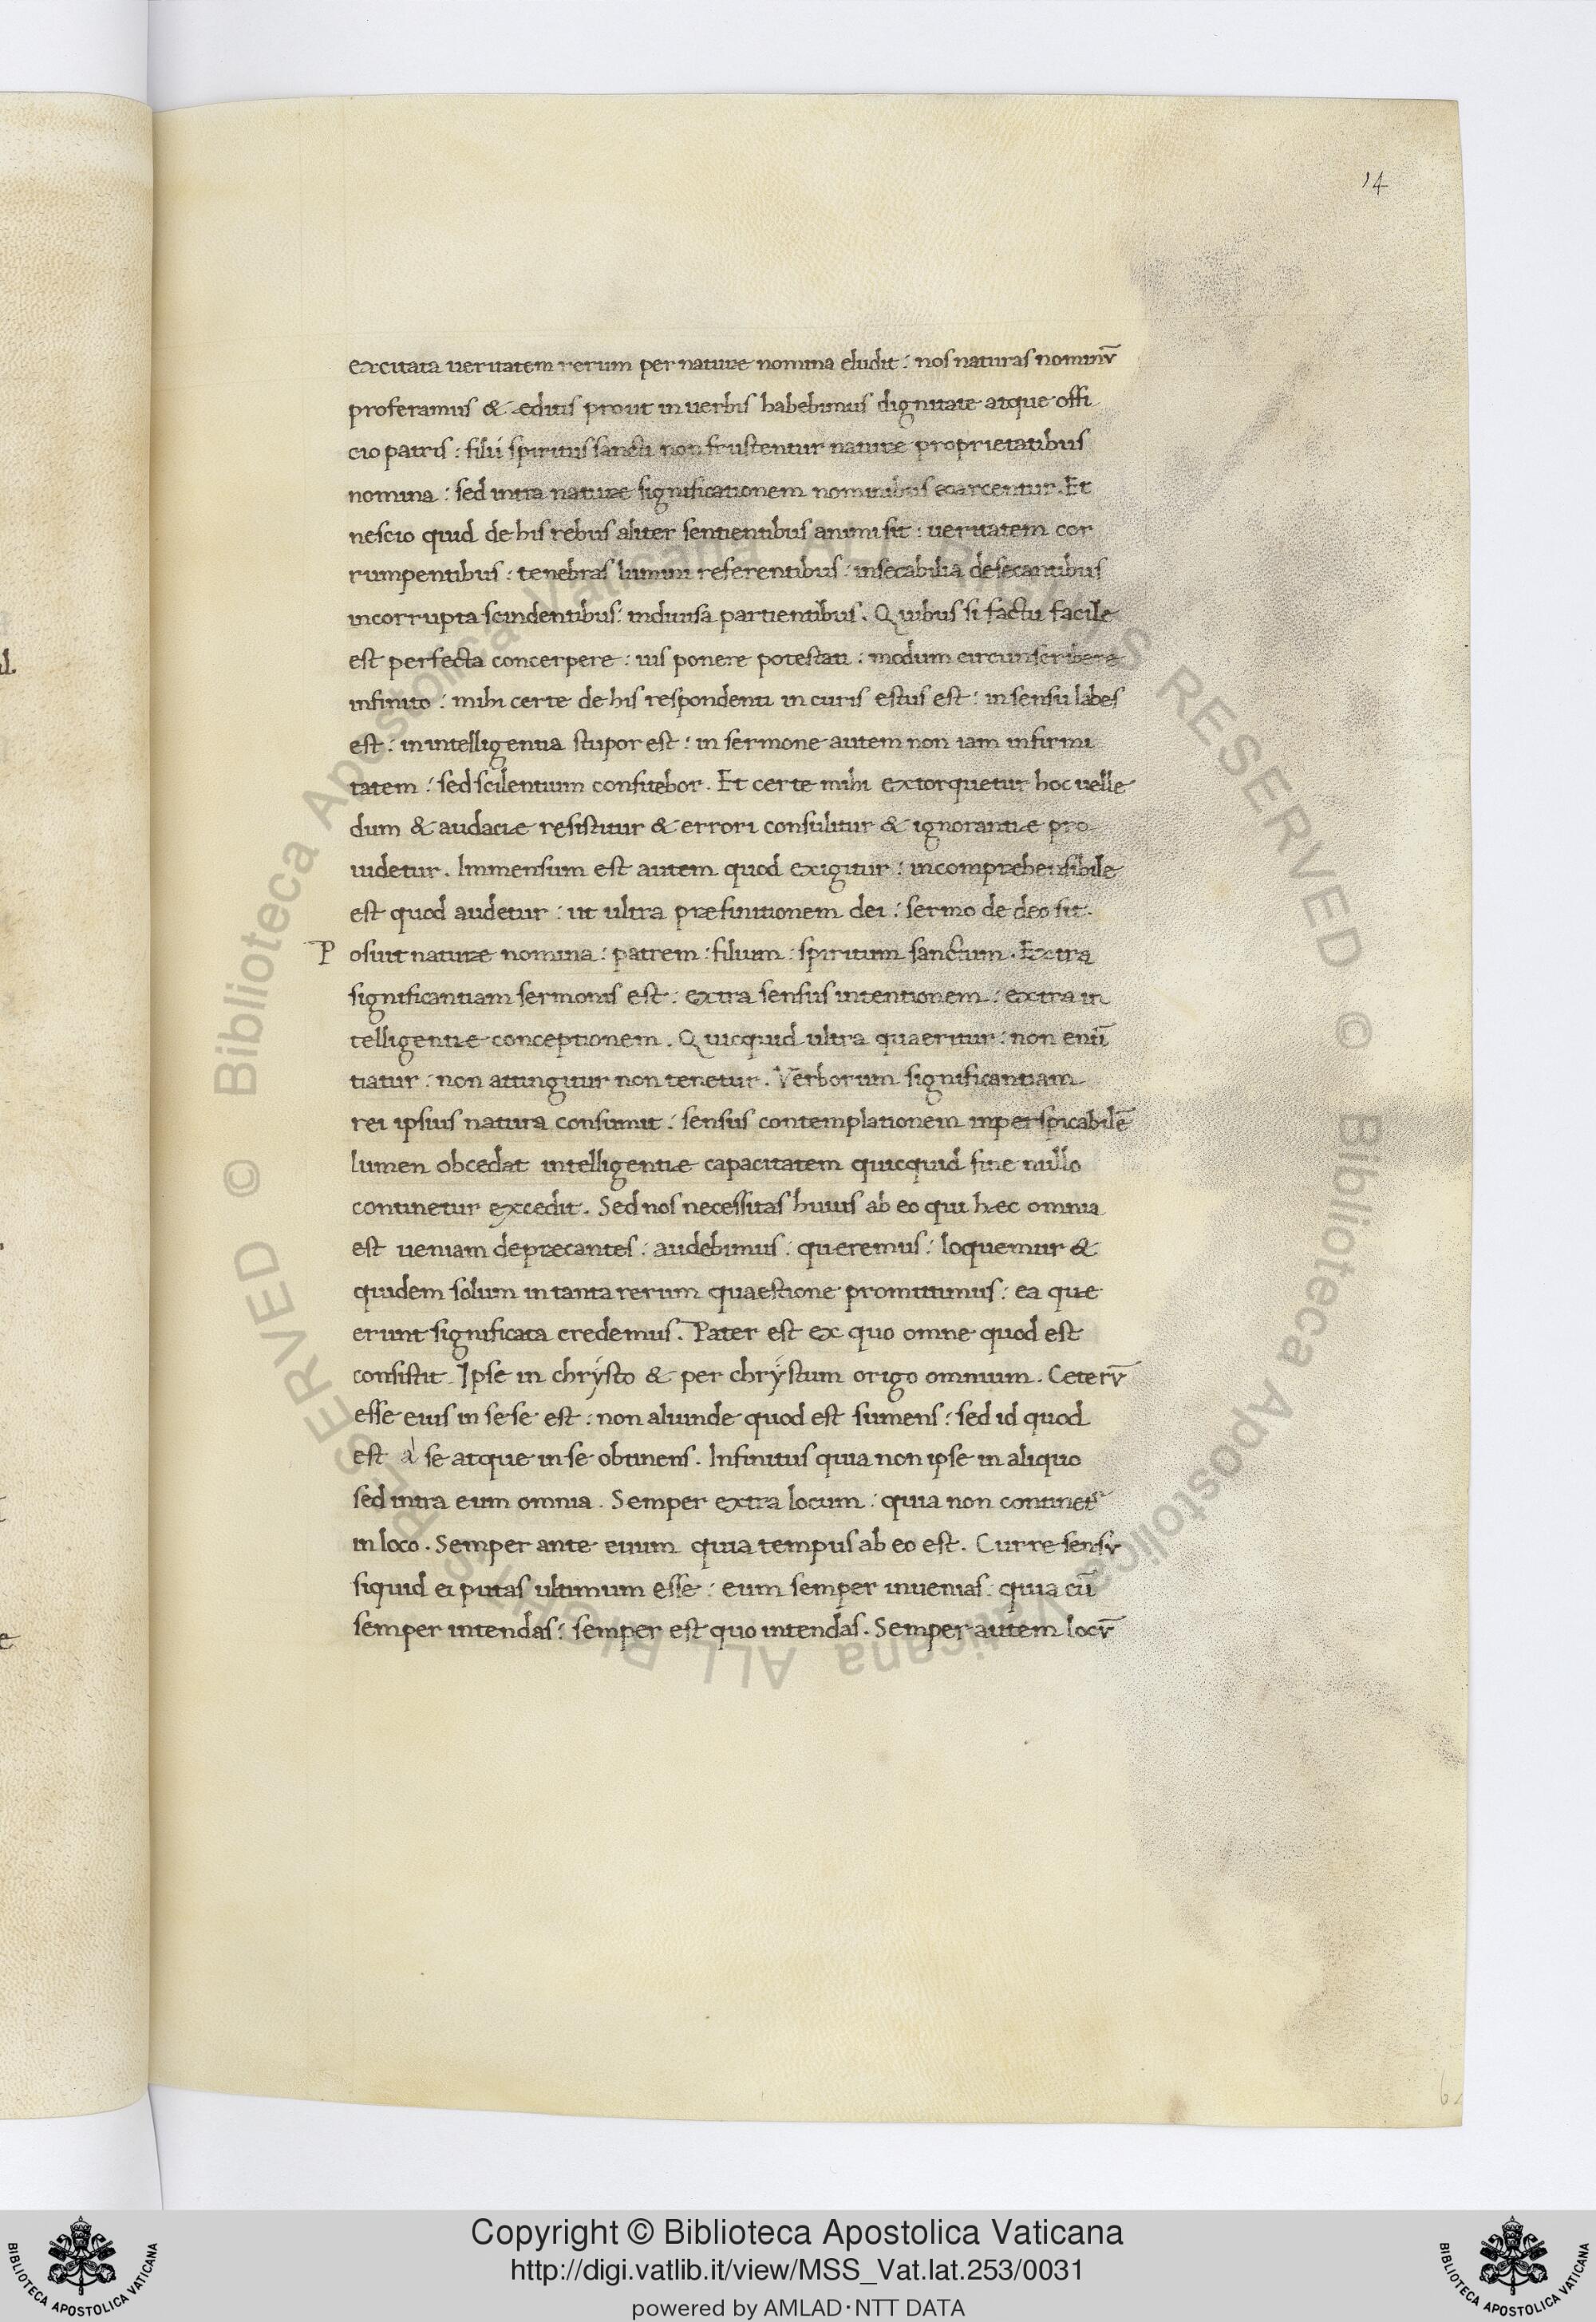 14
excitata ueritatem rerum per nature nomina eludit : nos naturas nominū
proferamus & editis prout in uerbis habebimus dignitate atque offi
cio patris : filii spiritus sancti non frustentur naturæ proprietatibus
nomina : sed intra naturæ significationem nominibus coarcentur. Et
nescio quid de his rebus aliter sentientibus animi sit : ueritatem cor
rumpentibus : tenebras lumini referentibus : insecabilia desecantibus
incorrupta scindentibus : indiuisa partientibus. Quibus si factu facile
est perfecta concerpere : uis ponere potestati : modum circunscribere
infinito : mihi certe de his respondenti in curis estus est : in sensu labes
est : in intelligentia stupor est : in sermone autem non iam infirmi
tatem : sed scilentium confitebor. Et certe mihi extorquetur hoc uelle
dum & audacie resistitur & errori consulitur & ignorantie pro
uidetur. Immensum est autem quod exigitur : incomprehensibile
est quod audetur : ut ultra præfinitionem dei : sermo de deo sit.
P osuit naturæ nomina : patrem : filium : spiritum sanctum. Extra
significantiam sermonis est : extra sensus intentionem : extra in
telligentie conceptionem. Quicquid ultra quaeritur : non enū
tiatur : non attingitur non tenetur. Verborum significantiam
rei ipsius natura consumit : sensus contemplationem inperspicabilē
lumen obcedat intelligentie capacitatem quicquid fine nullo
continetur excedit. Sed nos necessitas huius ab eo qui hæc omnia
est ueniam deprecantes : audebimus : queremus : loquemur &
quidem solum in tanta rerum quaestione promittimus : ea que
erunt significata credemus. Pater est ex quo omne quod est
consistit Ipse in chrýsto & per chrýstum origo omnium. Ceterū
esse eius in se se est : non aliunde quod est sumens : sed id quod
est à se atque in se obtinens. Infinitus quia non ipse in aliquo
sed intra eum omnia. Semper extra locum : quia non continet
in loco. Semper ante euum quia tempus ab eo est. Curre sensu
siquid ei putas ultimum esse : eum semper inuenias : quia cū
semper intendas : semper est quo intendas. Semper autem locū
Copyright © Biblioteca Apostolica Vaticana
http://digi.vatlib.it/view/MSS_Vat.lat.253/0031
powered by AMLAD·NTT DATA
BIBLIOTECA APOSTOLICA VATICANA
BIBLIOTECA APOSTOLICA VATICANA
© Biblioteca Apostolica Vaticana ALL RIGHTS RESERVED
© Biblioteca Apostolica Vaticana ALL RIGHTS RESERVED